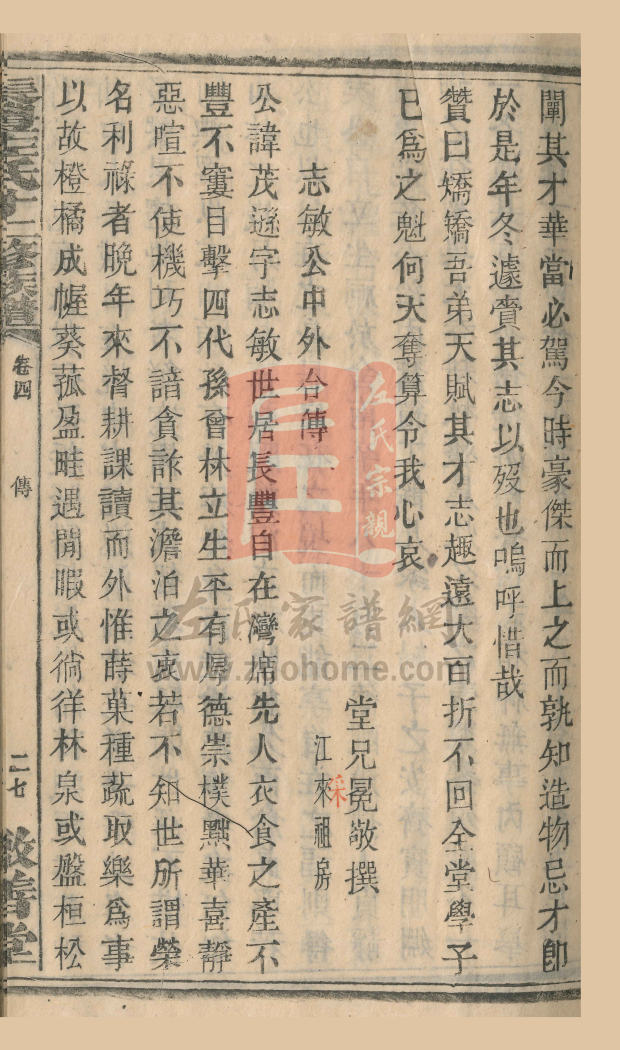 闡其才華當必駕今時豪傑而上之而孰知造物忌才卽
於是年冬遽賫其志以歿也嗚呼惜哉
贊曰矯矯吾弟天賦其才志趣遠大百折不回全堂學子
巳爲之魁何天奪算令我心哀
堂兄冕敬撰
志敏公中外合傳
江來祖房
采
公諱茂遜字志敏世居長豐自在灣席先人衣食之產不
豐不窶目擊四代孫曾林立生平有厚德崇樸黜華喜靜
惡喧不使機巧不諳貪詐其澹泊之衷若不知世所謂榮
名利祿者晚年來督耕課讀而外惟蒔菓種蔬取樂爲事
以故橙橘成幄葵菰盈畦遇閒暇或徜徉林泉或盤桓松
左氏十二修族譜
卷四
傳
二七
敬善堂
左氏宗親
左氏家譜網
www.zuohome.com